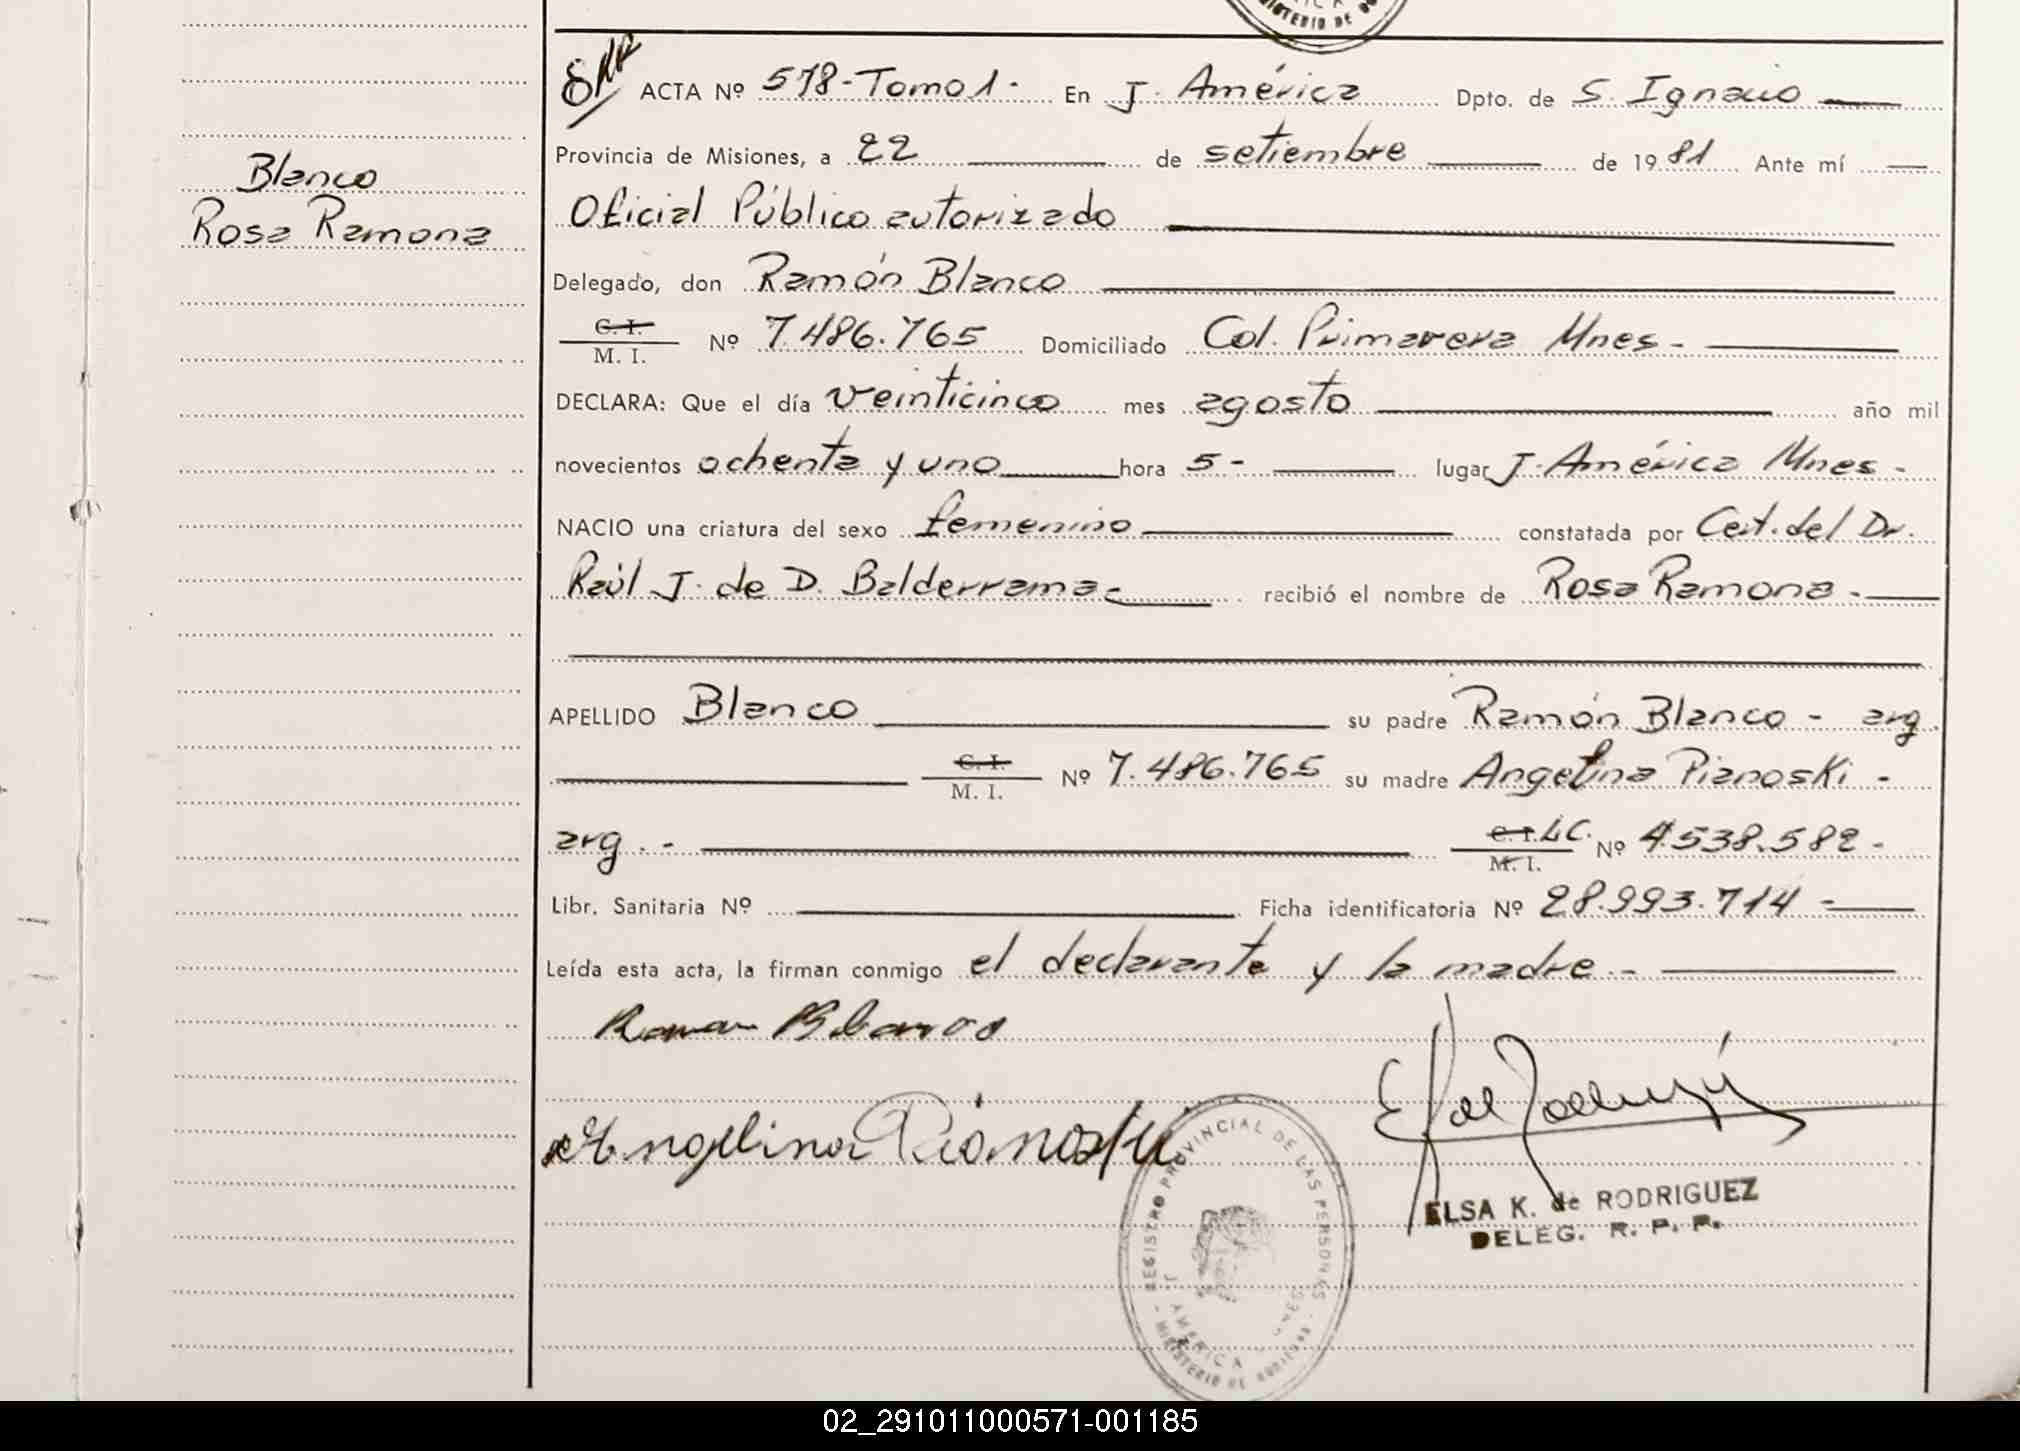 ISTERIO DE GO
ACTA Nº 578-Tomo 1. En J. América Dpto. de S. Ignacio
Provincia de Misiones, a 22 de setiembre de 1981 Ante mí
Blanco
Rosa Ramona
Oficial Público autorizado
Delegado, don Ramón Blanco
C. I.
M. I. Nº 7.486.765 Domiciliado Col. Primavera Mnes-
DECLARA: Que el día veinticinco mes agosto año mil
novecientos ochenta y uno hora 5- lugar J. América Mnes-
NACIO una criatura del sexo femenino constatada por Cert. del Dr.
Raúl J. de D. Balderrama recibió el nombre de Rosa Ramona-
APELLIDO Blanco su padre Ramón Blanco - arg
C. I.
M. I. Nº 7.486.765 su madre Angelina Pianoski -
arg.- C. I. LC.
M. I. Nº 4.538.582-
Libr. Sanitaria Nº Ficha identificatoria Nº 28.993.714-
Leída esta acta, la firman conmigo el declarante y la madre-
Ramon Blanco
Angelina Pianoski
REGISTRO PROVINCIAL DE LAS PERSONAS
J. AMERICA
MINISTERIO DE GOBIERNO
ELSA K. de RODRIGUEZ
DELEG. R. P. P.
02_291011000571-001185